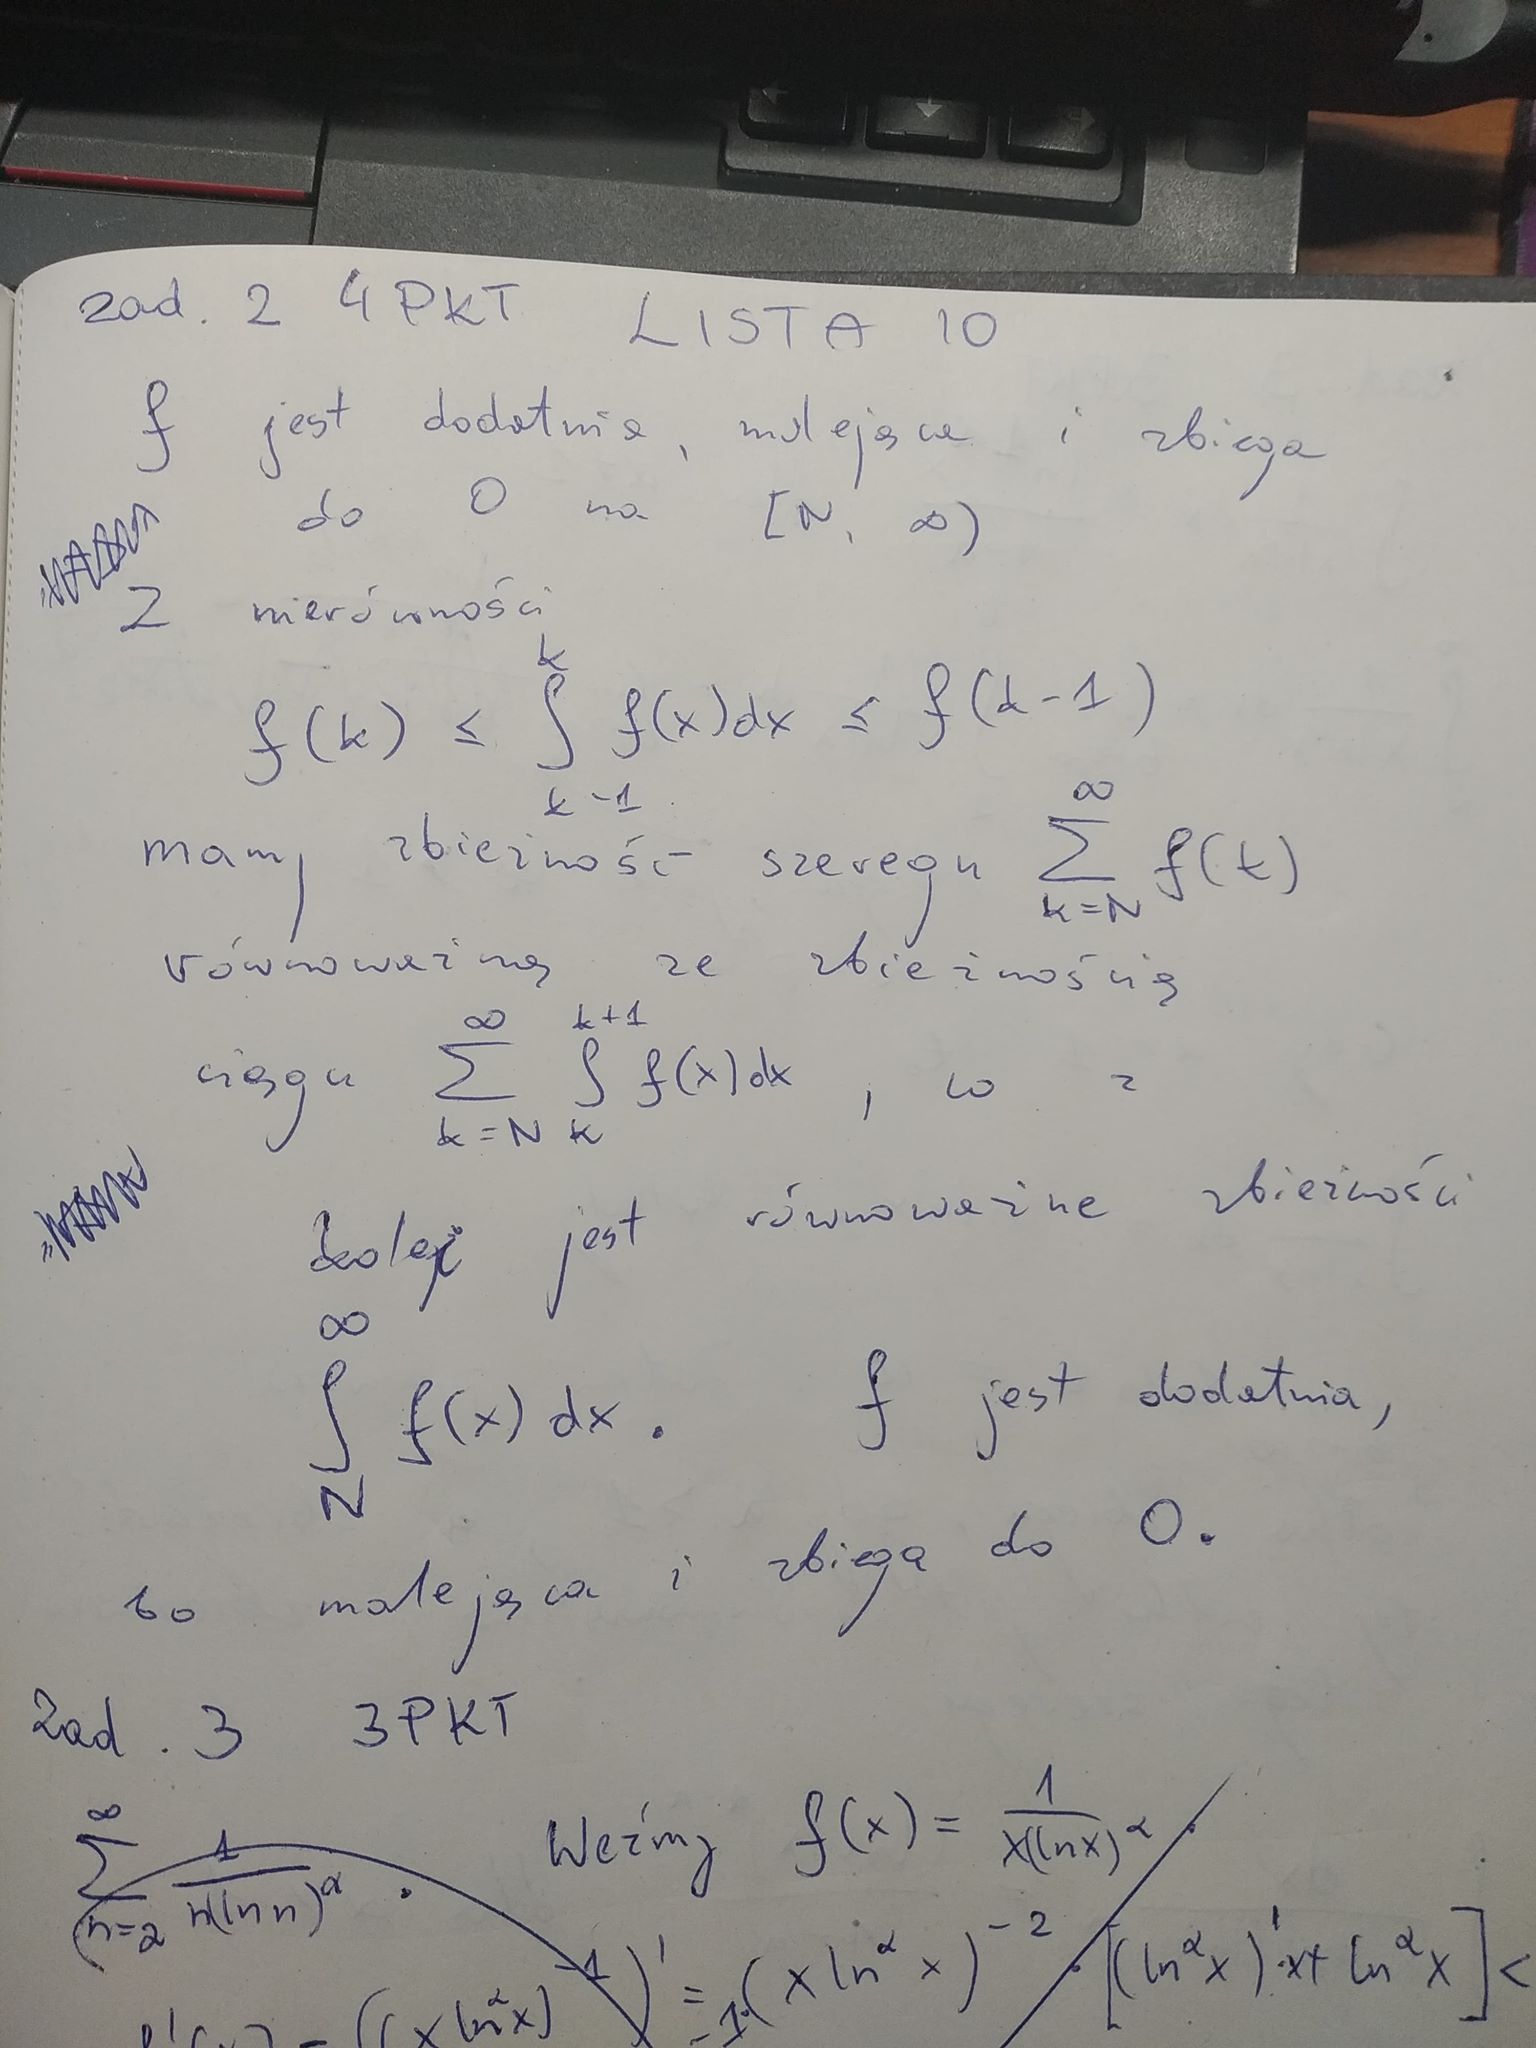 zad. 2 4 PKT LISTA 10
f jest dodatnia, malejąca i zbiega
do 0 na [N, ∞)
Z nierówności
f(k) ≤ ∫_{k-1}^{k} f(x)dx ≤ f(k-1)
mamy zbieżność szeregu ∑_{k=N}^{∞} f(k)
równoważną ze zbieżnością
ciągu ∑_{k=N}^{∞} ∫_{k}^{k+1} f(x)dx, co z
kolei jest równoważne zbieżności
∫_{N}^{∞} f(x) dx. f jest dodatnia,
bo malejąca i zbiega do 0.
Zad. 3 3PKT
∑_{n=2}^{∞} 1/(n(ln n)^α). Weźmy f(x) = 1/(x(ln x)^α).
f'(x) = ((x ln^α x)^{-1})' = -1·(x ln^α x)^{-2}·[(ln^α x)'·x+ ln^α x] <